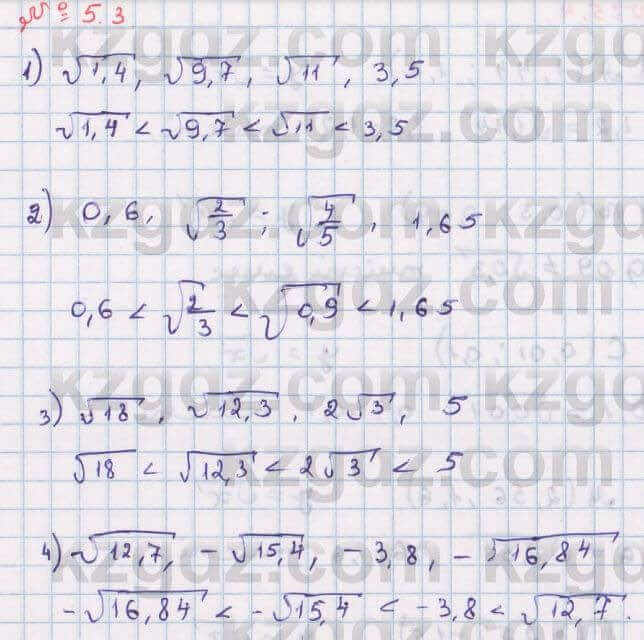 № 5.3
1) √1,4, √9,7, √11, 3,5
√1,4 < √9,7 < √11 < 3,5
2) 0,6, √2/3; √4/5, 1,65
0,6 < √2/3 < √0,9 < 1,65
3) √18, √12,3, 2√3, 5
√18 < √12,3 < 2√3 < 5
4) √12,7, -√15,4, -3,8, -√16,84
-√16,84 < -√15,4 < -3,8 < √12,7.
kzgdz.com